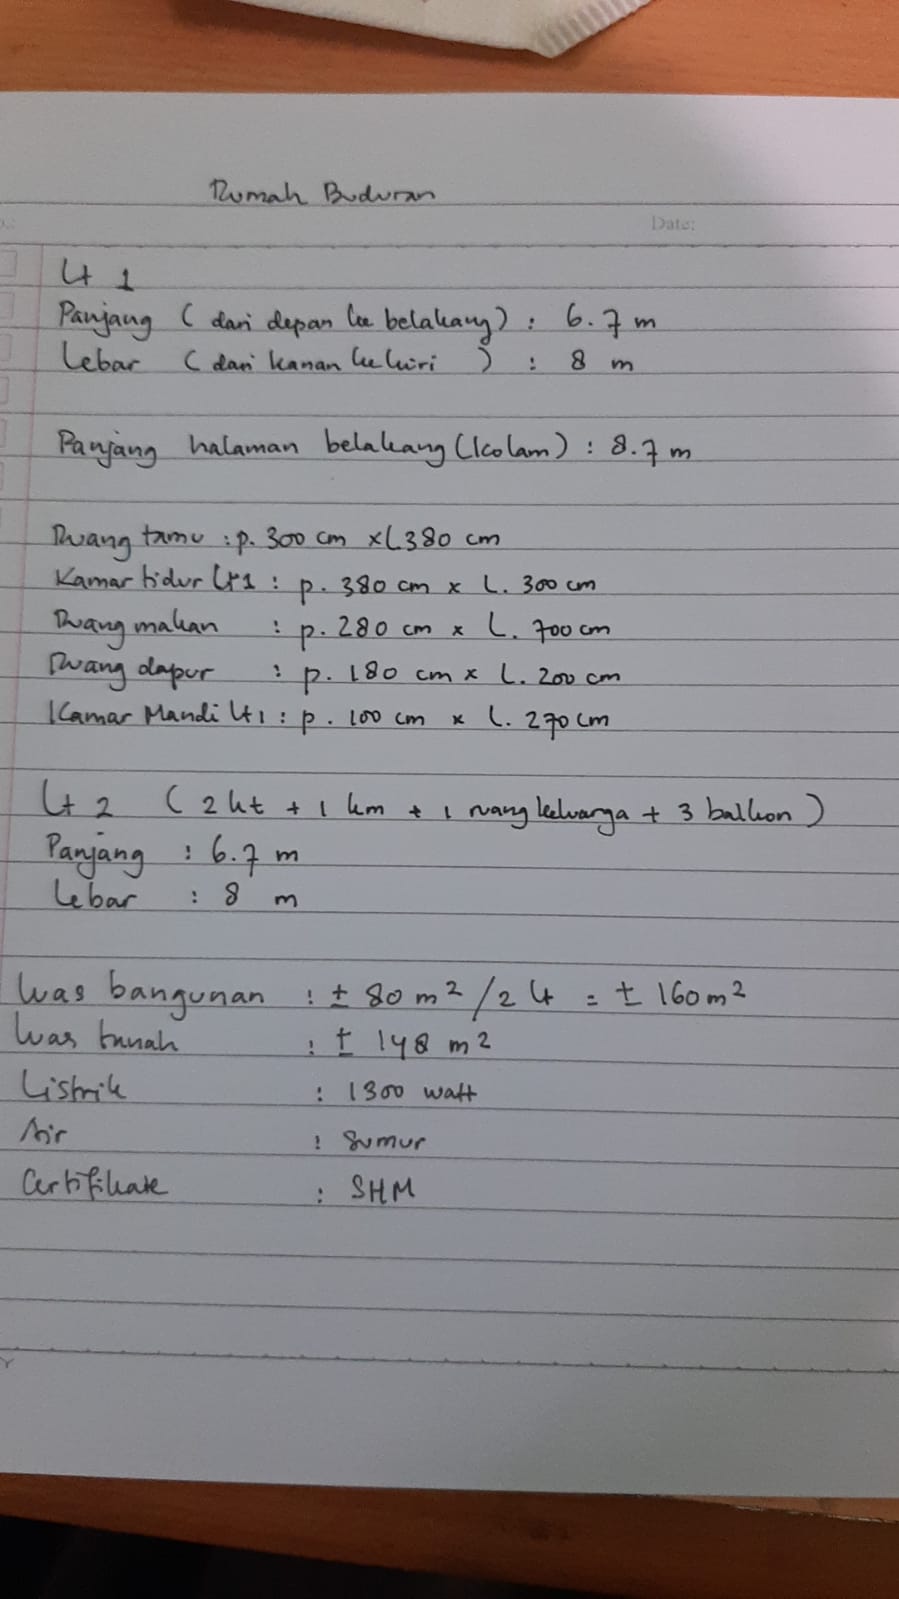 Rumah Buduran
Date:
Lt 1
Panjang ( dari depan ke belakang) : 6.7 m
Lebar ( dari kanan ke kiri ) : 8 m
Panjang halaman belakang (Kolam) : 8.7 m
Ruang tamu : p. 300 cm x L 380 cm
Kamar tidur Lt 1 : p. 380 cm x L. 300 cm
Ruang makan : p. 280 cm x L. 700 cm
Ruang dapur : p. 180 cm x L. 200 cm
Kamar Mandi Lt 1 : p. 100 cm x L. 270 cm
Lt 2 ( 2 kt + 1 km + 1 ruang keluarga + 3 balkon )
Panjang : 6.7 m
Lebar : 8 m
Luas bangunan : ± 80 m² / 2 Lt = ± 160 m²
Luas tanah : ± 148 m²
Listrik : 1300 watt
Air : Sumur
Certifikate : SHM